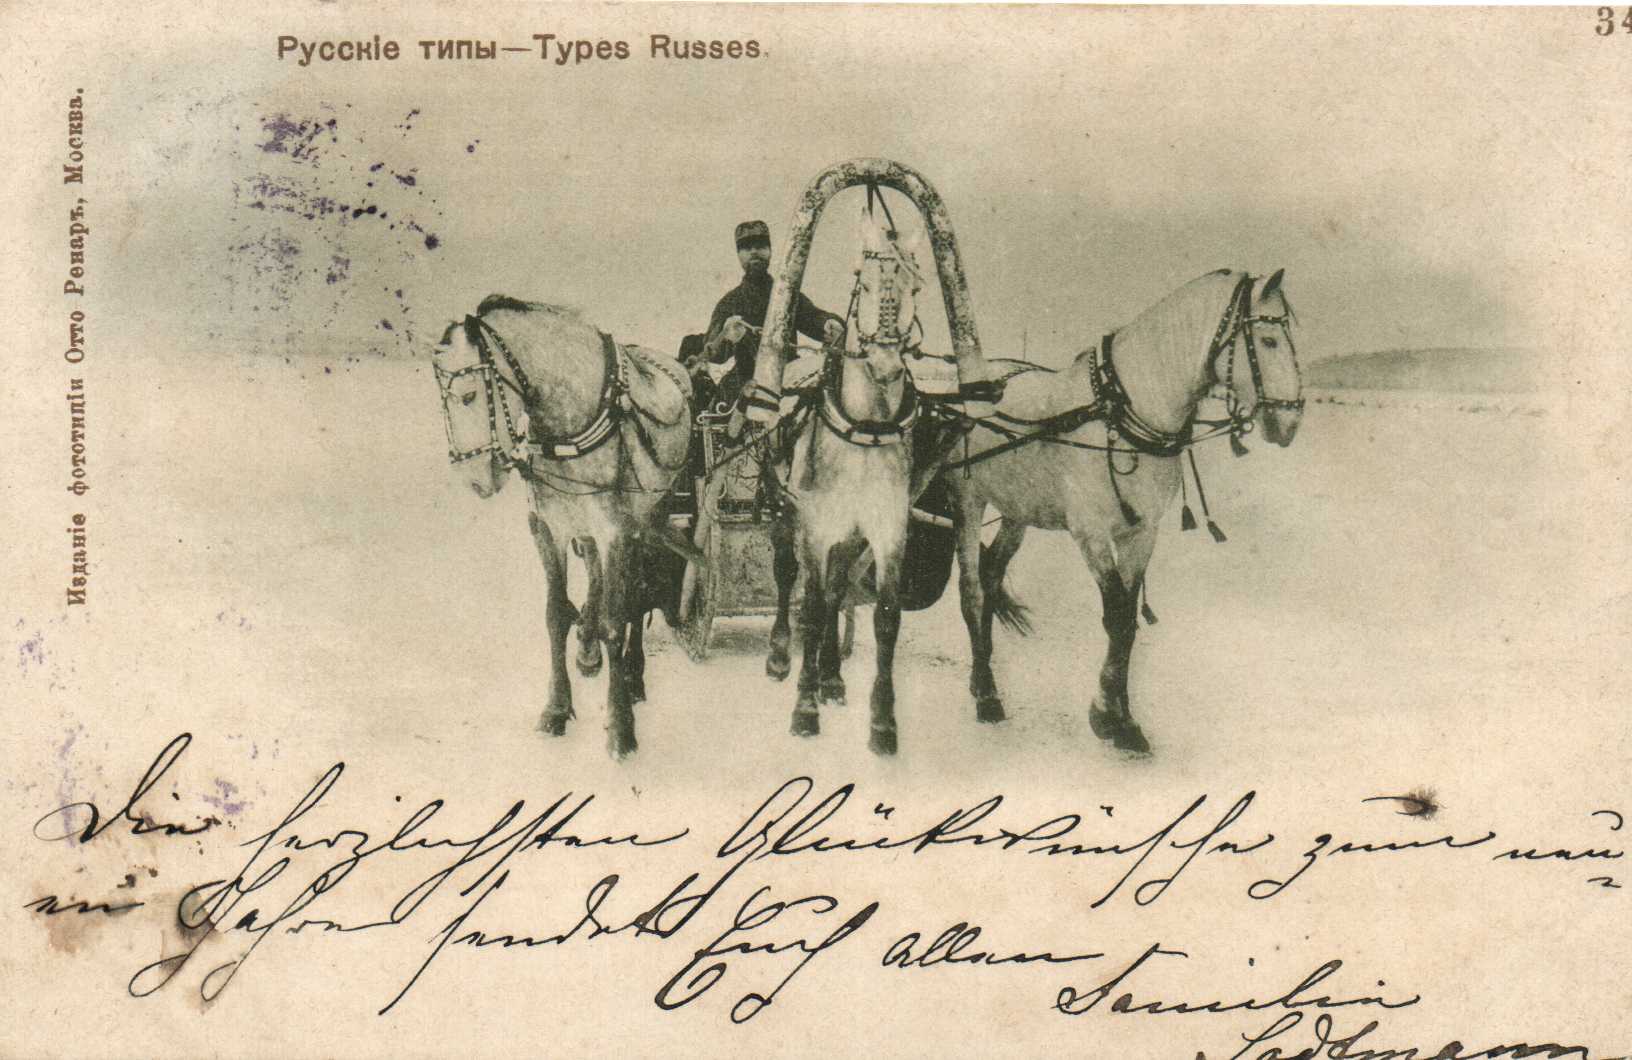 34
Русскіе типы—Types Russes.
Изданіе фототипіи Отто Ренаръ, Москва.
Die herzlichsten Glückwünsche zum neu=
en Jahre sendet Euch allen
Familie